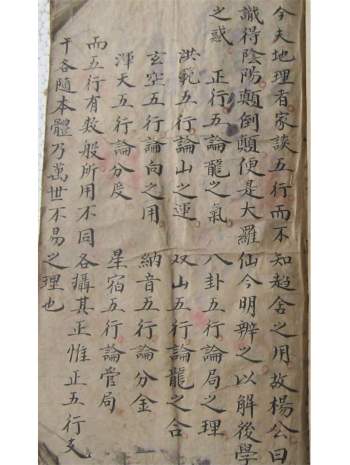 今夫地理看家談五行而不知趨舍之用故楊公曰
識得陰陽顛倒顛便是大羅仙今明辨之以解後學
之惑 正行五論龍之氣 八卦五行論局之理
洪範五行論山之運 双山五行論龍之合
玄空五行論向之用 納音五行論分金
渾天五行論分度 星宿五行論營局
而五行有数般所用不同各攝其正惟正五行支
干各隨本體乃萬世不易之理也